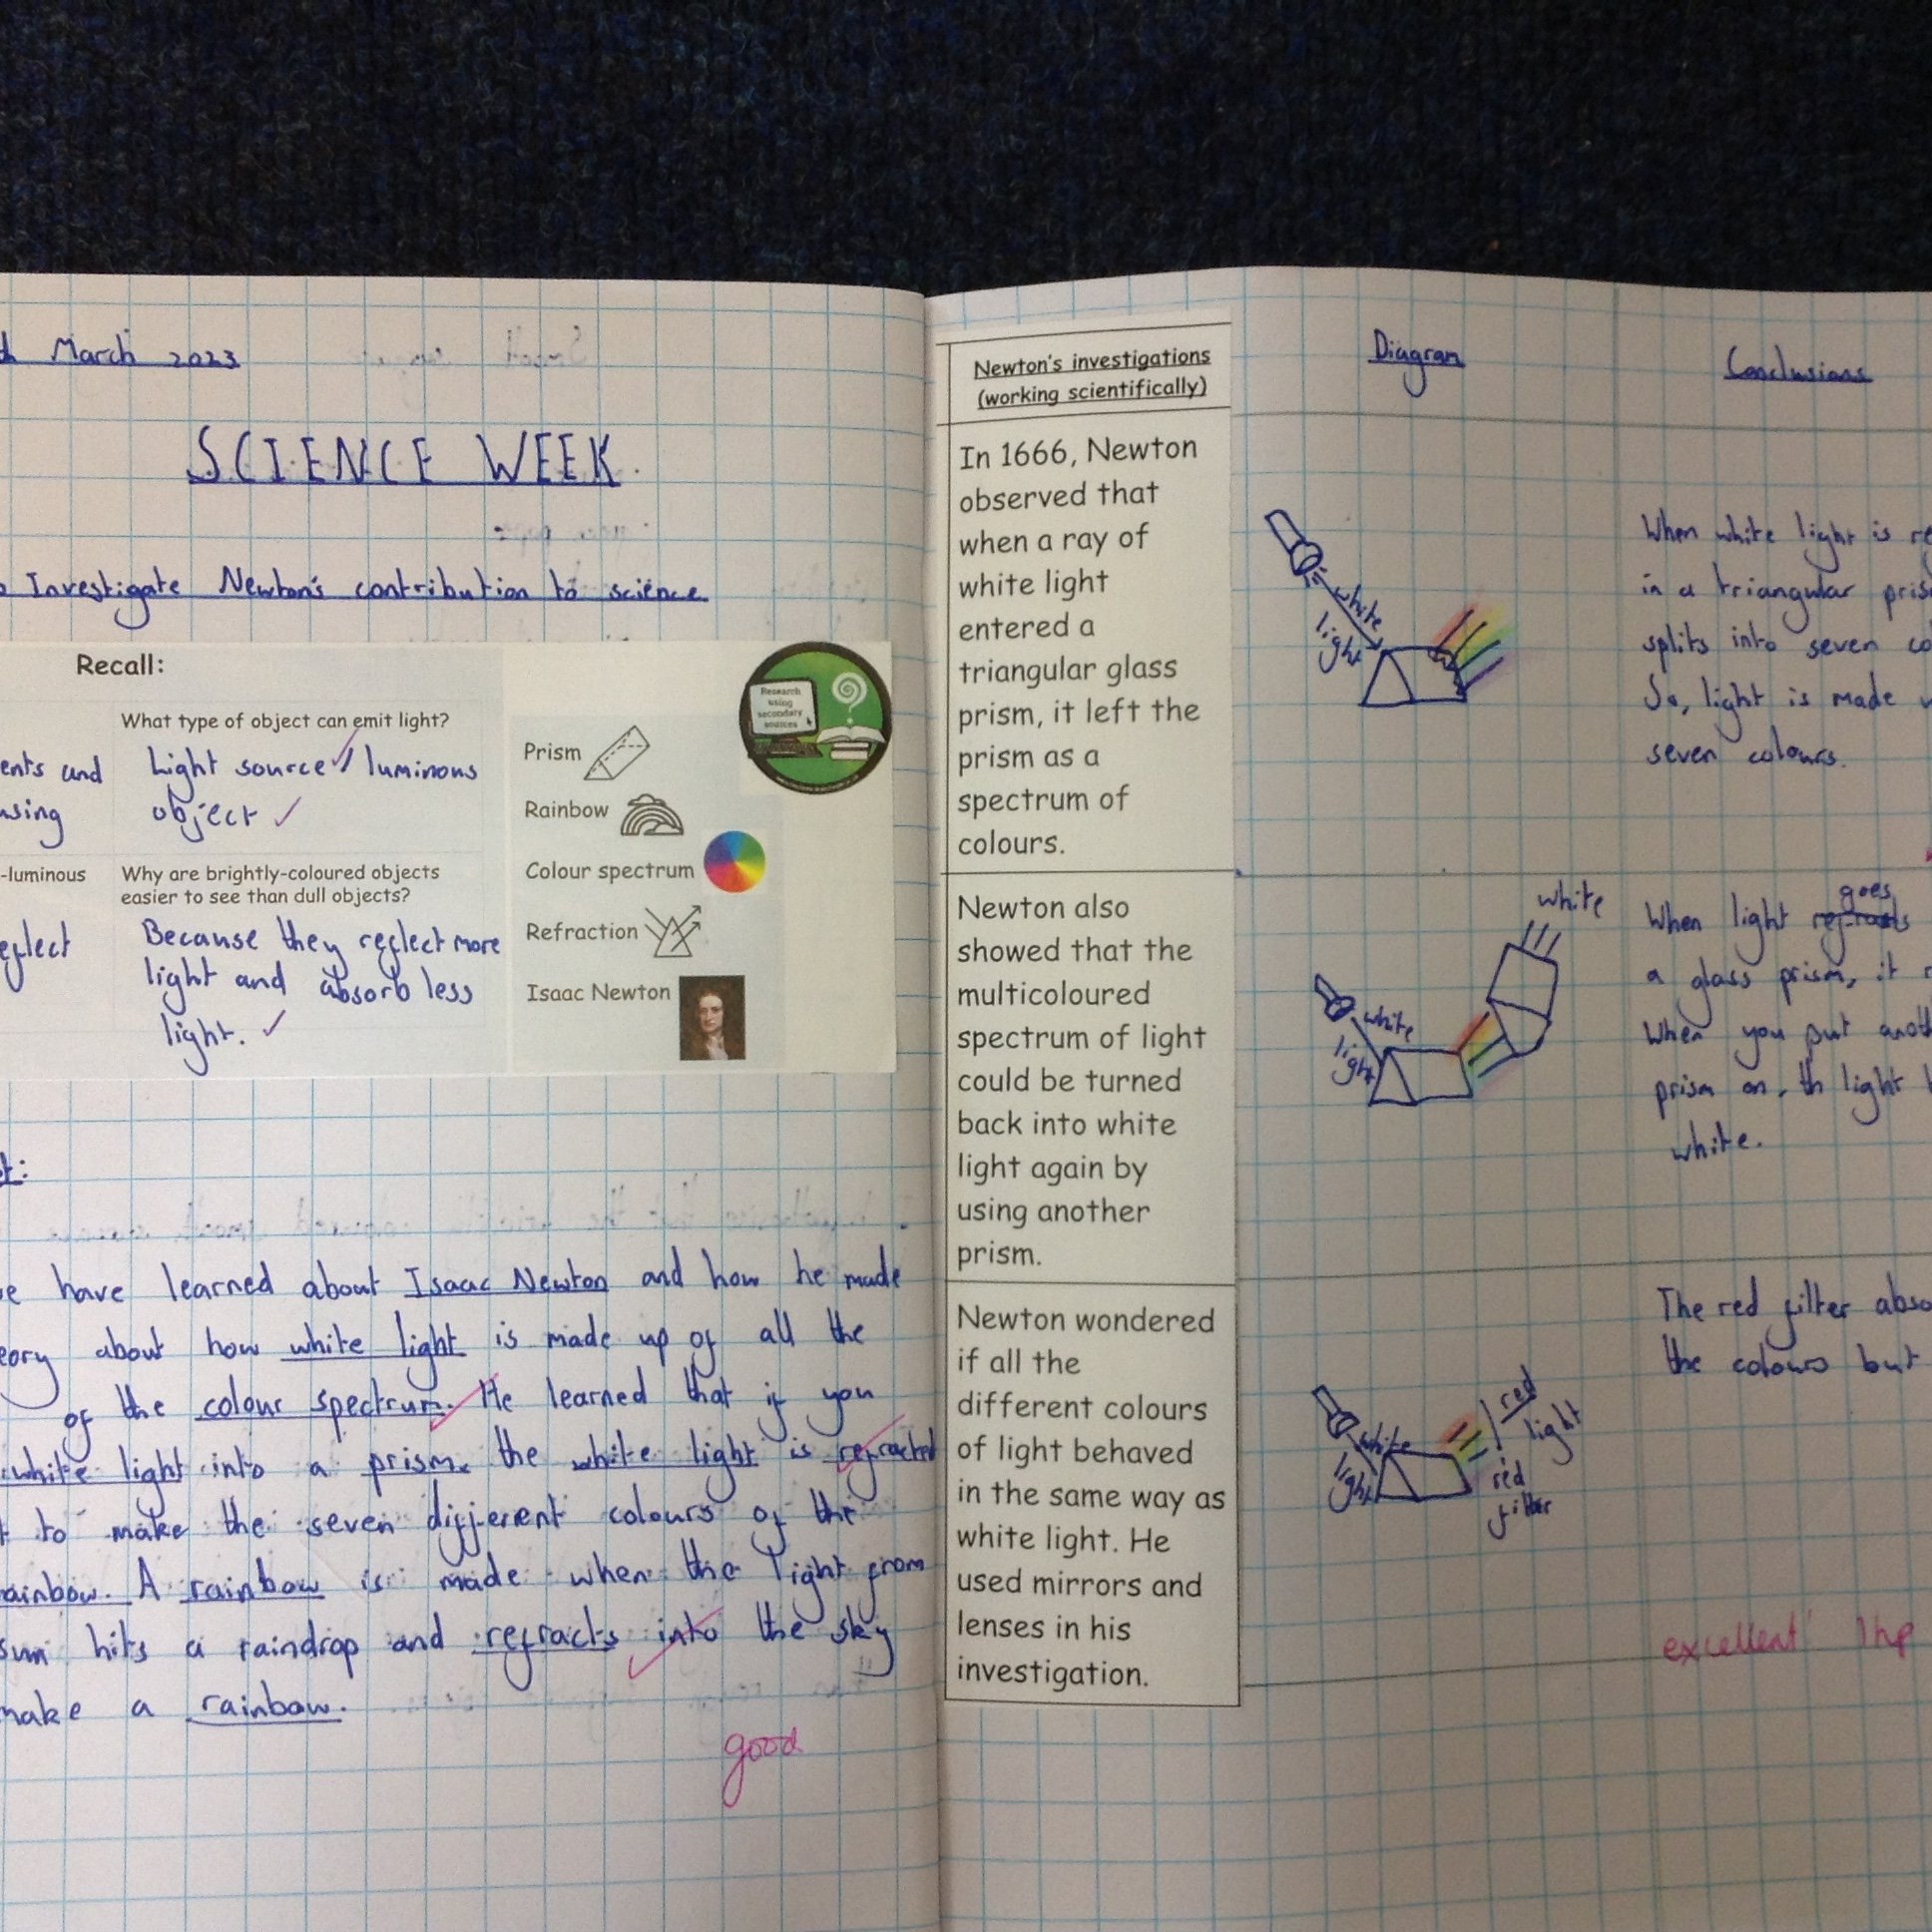 March 2023
SCIENCE WEEK.
Investigate Newton's contribution to science
Recall:
What type of object can emit light?
ents and
using
Light source / luminous
object
-luminous
Why are brightly-coloured objects
easier to see than dull objects?
eflect
Because they reflect more
light and absorb less
light.
Prism
Rainbow
Colour spectrum
Refraction
Isaac Newton
Research
using
secondary
sources
t:
e have learned about Isaac Newton and how he made
eory about how white light is made up of all the
of the colour spectrum. He learned that if you
white light into a prism. the white light is refracted
t to make the seven different colours of the
ainbow. A rainbow is made when the light from
sun hits a raindrop and refracts into the sky
make a rainbow.
good
Newton's investigations
(working scientifically)
In 1666, Newton
observed that
when a ray of
white light
entered a
triangular glass
prism, it left the
prism as a
spectrum of
colours.
Newton also
showed that the
multicoloured
spectrum of light
could be turned
back into white
light again by
using another
prism.
Newton wondered
if all the
different colours
of light behaved
in the same way as
white light. He
used mirrors and
lenses in his
investigation.
Diagram
white
light
white
white
light
white
light
red
light
red
filter
Conclusions
When white light is re
in a triangular pris
splits into seven co
So, light is made u
seven colours.
goes
When light
a glass prism, it r
When you put anoth
prism on, th light b
white.
The red filter abso
the colours but
excellent 1hp